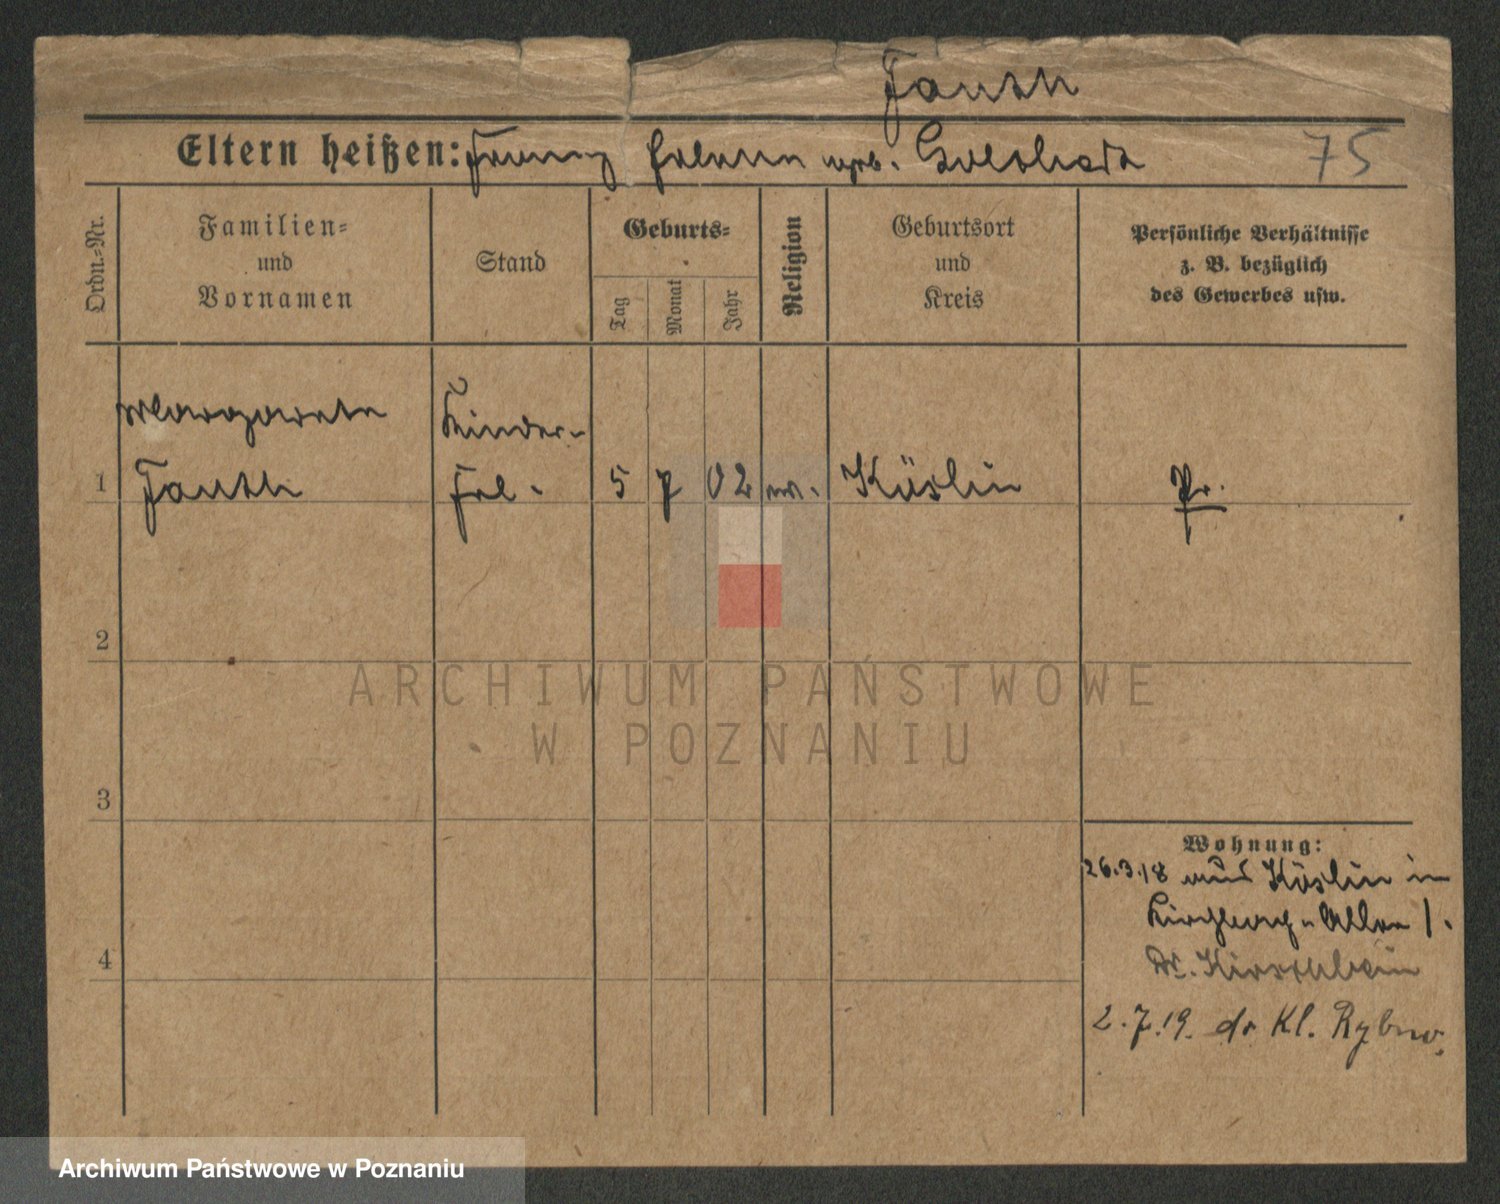 Fauth
Eltern heißen: Franz Helene geb.
75
Ordn.-Nr.
Familien-
und
Vornamen
Stand
Geburts-
Tag
Monat
Jahr
Religion
Geburtsort
und
Kreis
Persönliche Verhältnisse
z. B. bezüglich
des Gewerbes usw.
Margarete
Kinder-
1 Fauth Frl. 5 7 02 ev. Köslin Pr.
2
3
4
Wohnung:
26.3.18 aus Köslin in
Kirchbach-Allee 1.
Dr. Kirschstein
2.7.19. Kl. Rybno.
ARCHIWUM PAŃSTWOWE
W POZNANIU
Archiwum Państwowe w Poznaniu